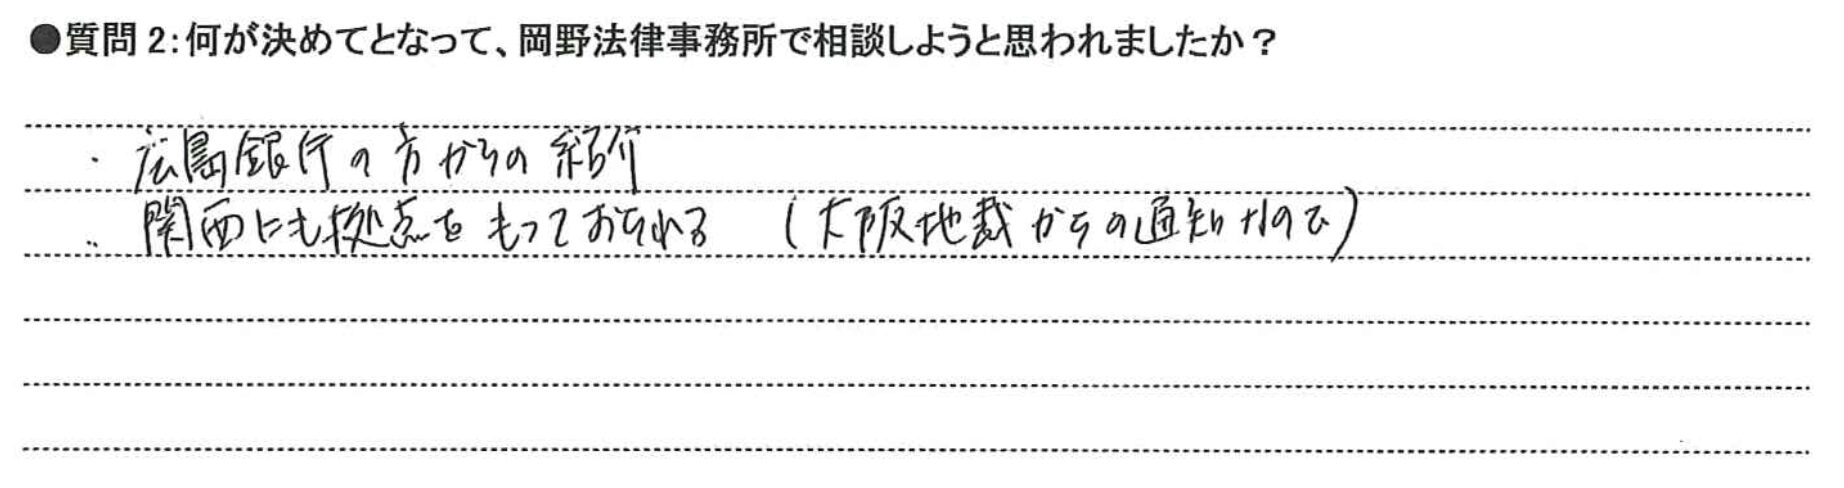 ●質問2:何が決めてとなって、岡野法律事務所で相談しようと思われましたか？
・広島銀行の方からの紹介
・関西にも拠点をもっておられる （大阪地裁からの通知なので）